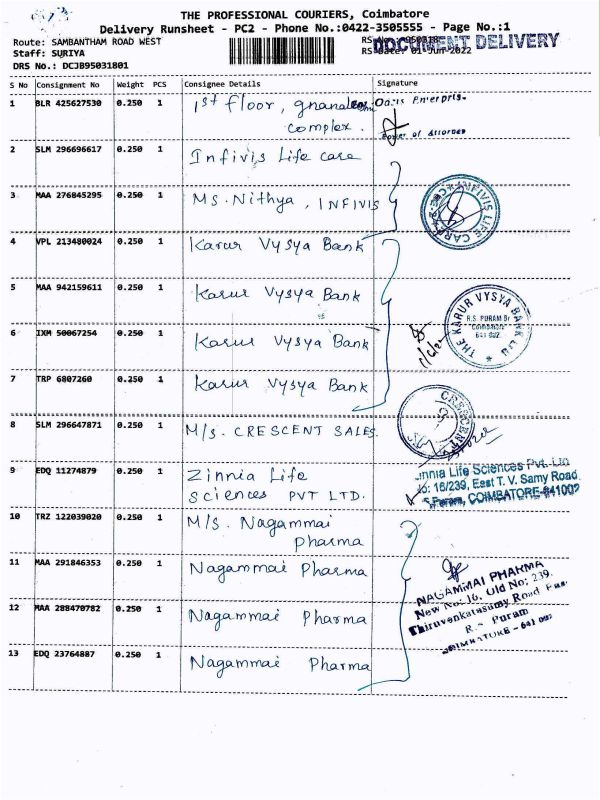 THE PROFESSIONAL COURIERS, Coimbatore
Delivery Runsheet - PC2 - Phone No.:0422-3505555 - Page No.:1
Route: SAMBANTHAM ROAD WEST
DOCUMENT DELIVERY
Staff: SURIYA
RS Date: 01-Jun-2022
DRS No.: DCJB95031801
S No Consignment No Weight PCS Consignee Details Signature
1 BLR 425627530 0.250 1 1st floor, complex.
2 SLM 296696617 0.250 1 Infivis Life care
3 MAA 276845295 0.250 1 MS. Nithya, INFIVIS
INFIVIS LIFE CARE
4 VPL 213480024 0.250 1 Karur Vysya Bank
5 MAA 942159611 0.250 1 Karur Vysya Bank
THE KARUR VYSYA BANK Ltd
R.S. PURAM Br
Coimbatore
641 002.
6 IXM 50067254 0.250 1 Karur Vysya Bank
7 TRP 6807260 0.250 1 Karur Vysya Bank
8 SLM 296647871 0.250 1 M/s. CRESCENT SALES.
CRESCENT
9 EDQ 11274879 0.250 1 Zinnia Life Sciences PVT LTD.
Zinnia Life Sciences Pvt. Ltd
No: 16/239, East T. V. Samy Road
R.S Puram, COIMBATORE-641002
10 TRZ 122039020 0.250 1 M/s. Nagammai Pharma
11 MAA 291846353 0.250 1 Nagammai Pharma
NAGAMMAI PHARMA
New No: 16, Old No: 239,
Thiruvenkatasamy Road East
R.S Puram
COIMBATORE - 641 002
12 MAA 288470782 0.250 1 Nagammai Pharma
13 EDQ 23764887 0.250 1 Nagammai Pharma